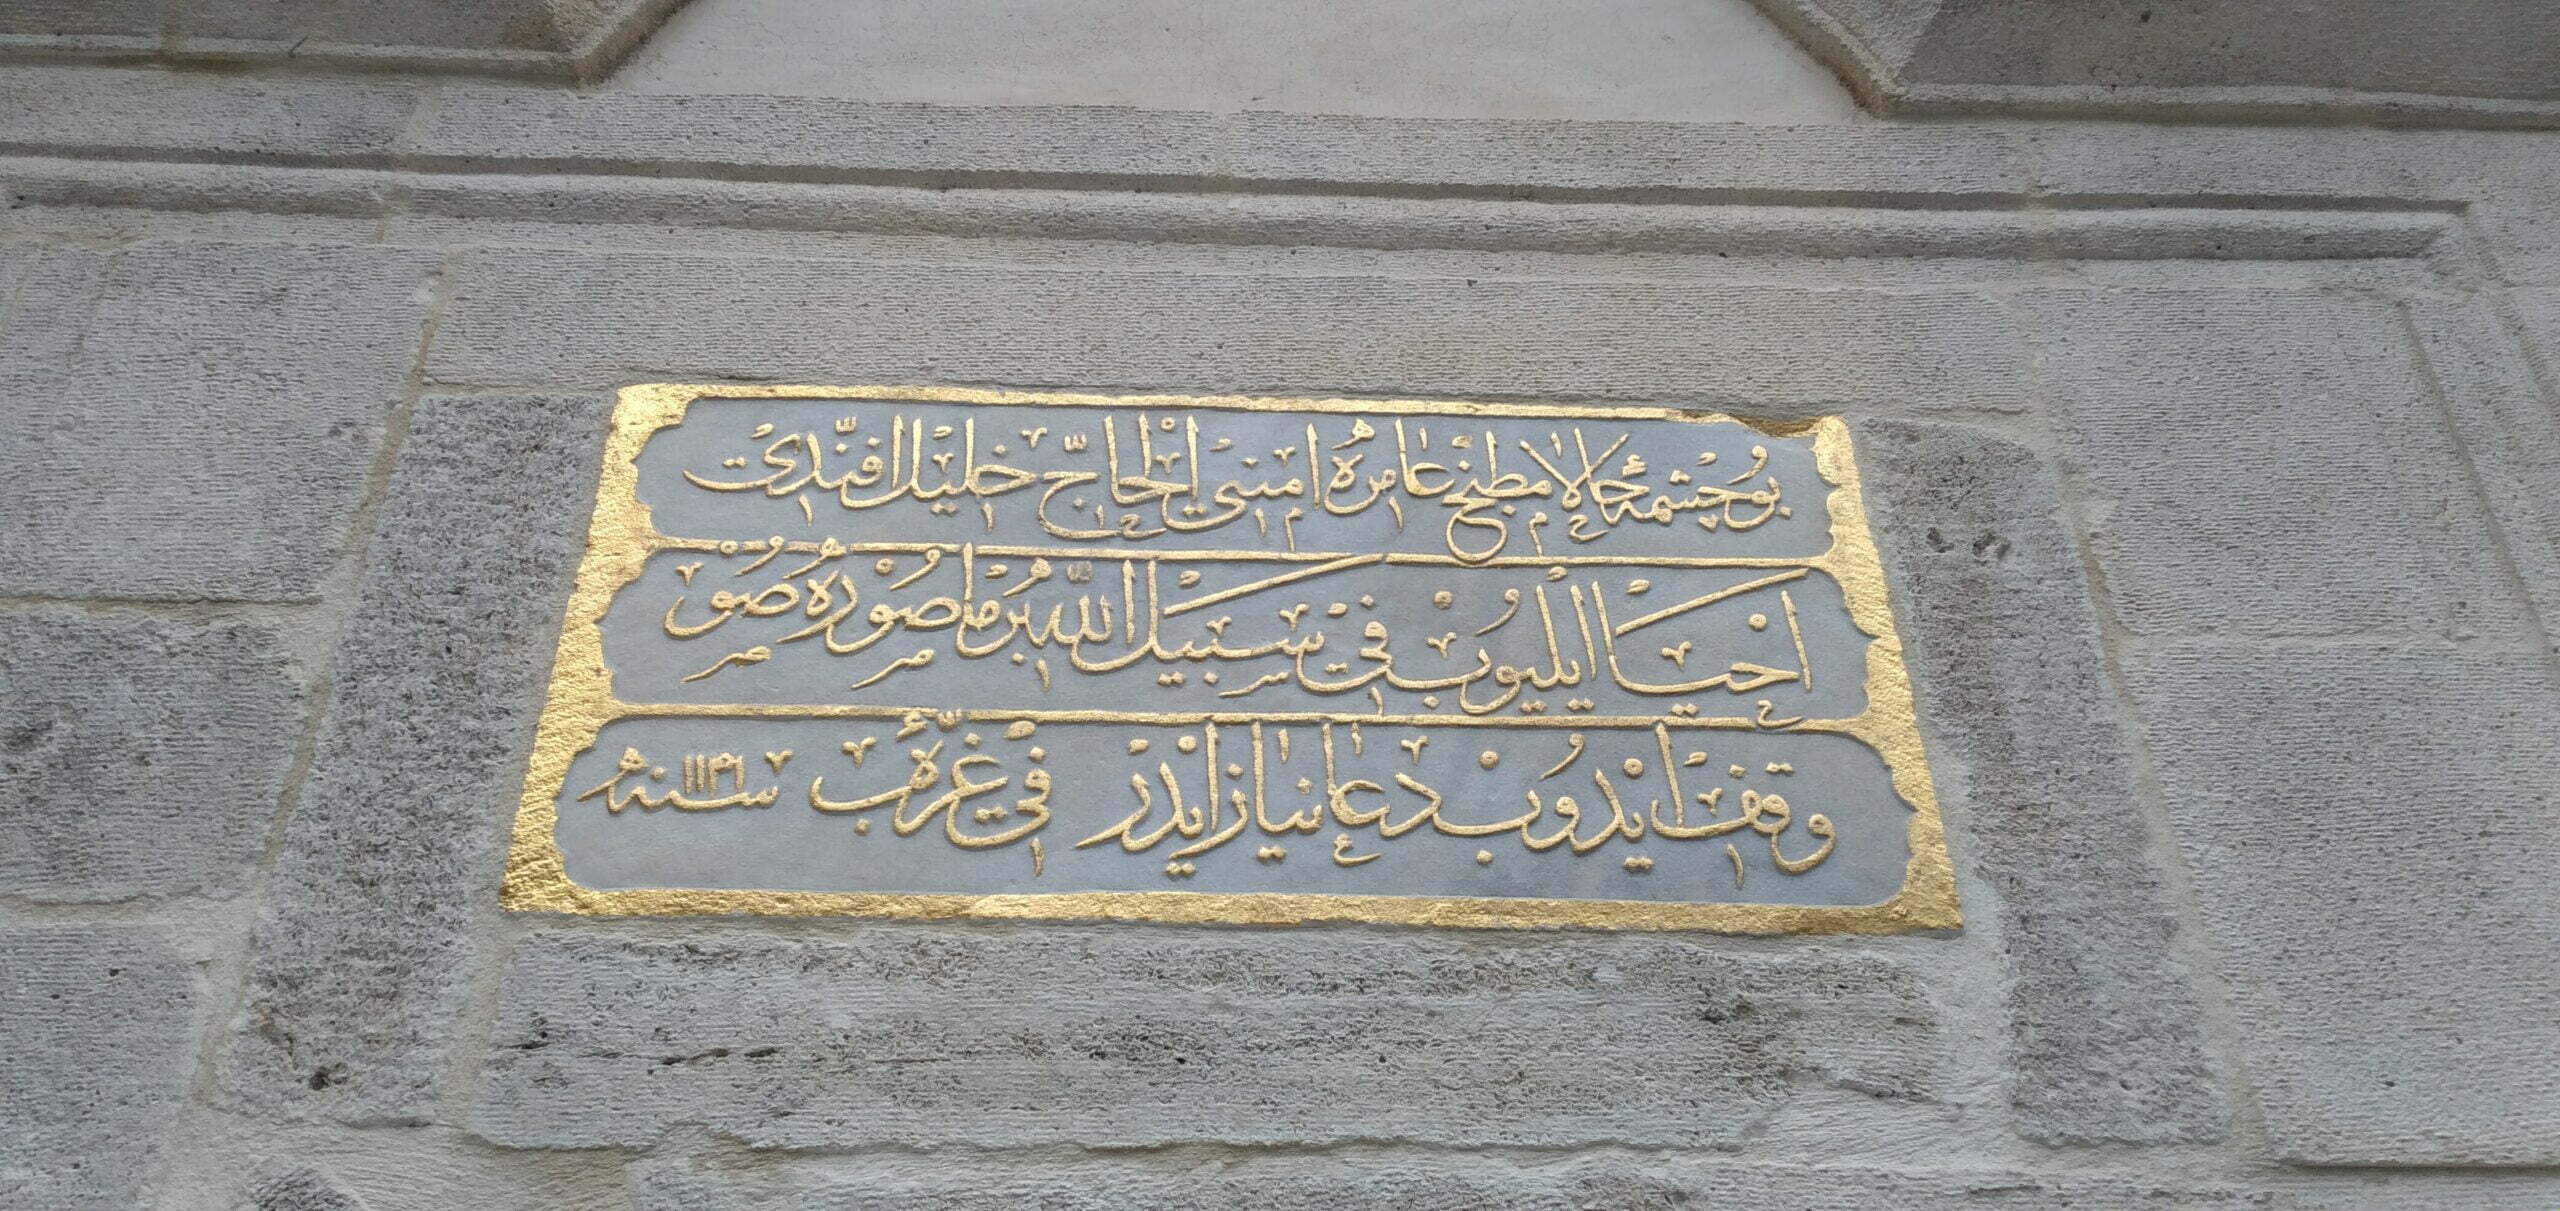 بو چشمه‌ٔ حالا مطبخ عامره امینی الحاج خلیل افندی
احیا ایلیوب فی سبیل الله بر ماصوره صو
وقف ایدوب دعا نیاز ایدر فی غرّهٔ ب سنه ١١٣٦